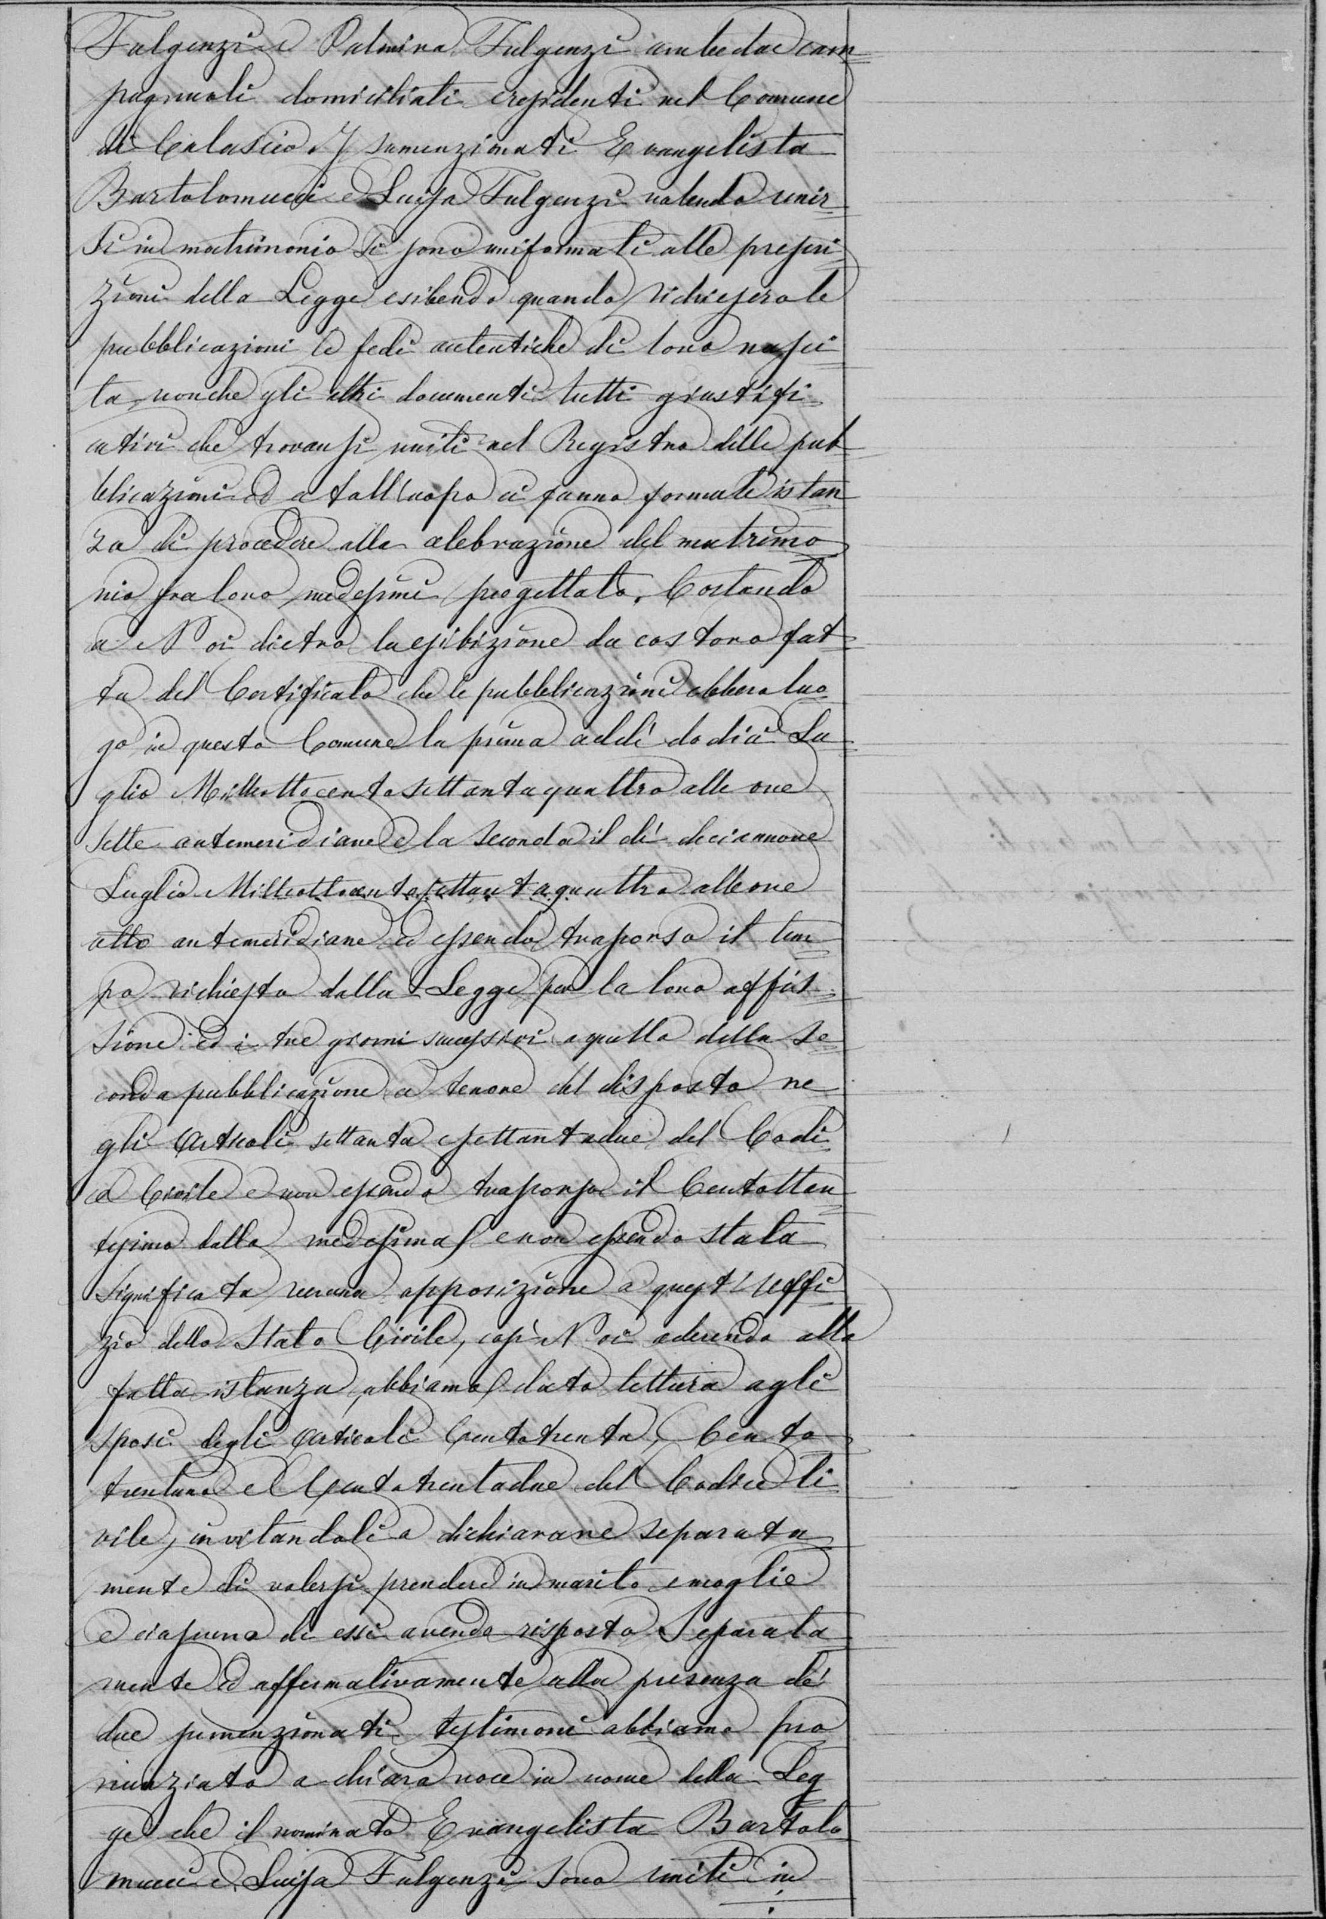 Fulgenzi e Palmina Fulgenzi ambedue cam
pagnuoli domiciliati eresidenti nel Comune
di Calascio. I sumenzionati Evangelista
Bartolomucci e Luisa Fulgenzi volendo unir
si in matrimonio si sono uniformati alle prescri
zioni della Legge esibendo quando richiesero le
pubblicazioni le fedi autentiche di loro nasci
ta, nonche gli altri documenti tutti giustifi
cativi che trovansi uniti nel Registro delle pub
blicazioni ed a tall'uopo ci fanno formale istan
za di procedere alla celebrazione del matrimo
nio fra loro medesimi progettato. Costando
a Noi dietro la esibizione da costoro fat
ta del Certificato che le pubblicazioni ebbero luo
go in questo Comune la prima addì dodici Lu
glio Milleottocentosettantaquattro alle ore
sette antemeridiane e la seconda il dì diciannove
Luglio Milleottocentosettantaquattro alle ore
otto antemeridiane ed essendo trasporso il tem
po richiesto dalla Legge per la loro affis
sione ed i tre giorni successivi a quello della se
conda pubblicazione a tenore del disposto ne
gli Articoli settanta esettantadue del Codi
ce Civile e non essendo trasporso il Centottan
tesimo dalla medesima e non essendo stata
significata veruna opposizione a quest'Uffi
zio dello Stato Civile, così Noi aderendo alla
fatta istanza, abbiamo dato lettura agli
sposi degli Articoli Centotrenta, Cento
trentuno e Centotrentadue del Codice Ci
vile, invitandoli a dichiarare separata
mente di volersi prendere in marito emoglie
e ciascuno di essi avendo risposto separata
mente ed affermativamente alla presenza de'
due sumenzionati testimoni abbiamo pro
nunziato a chiara voce in nome della Leg
ge che il nominato Evangelista Bartolo
mucci e Luisa Fulgenzi sono uniti in